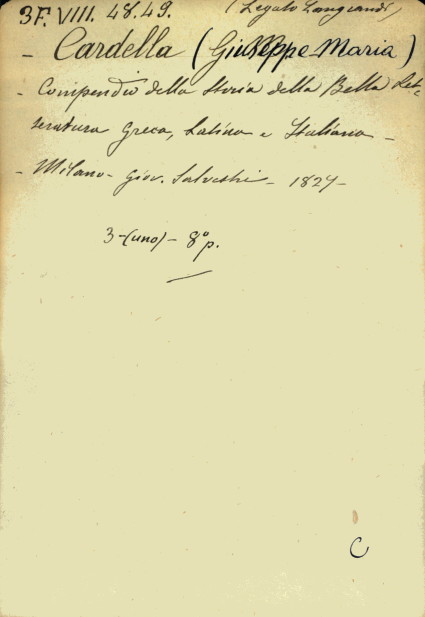 3F. VIII. 48.49. (Legato Langrandi)
- Cardella (Giuseppe Maria)
- Compendio della Storia della Bella Let-
teratura Greca, Latina e Italiana -
- Milano - Giov. Silvestri - 1827 -
3 - (uno) - 8º p.
C